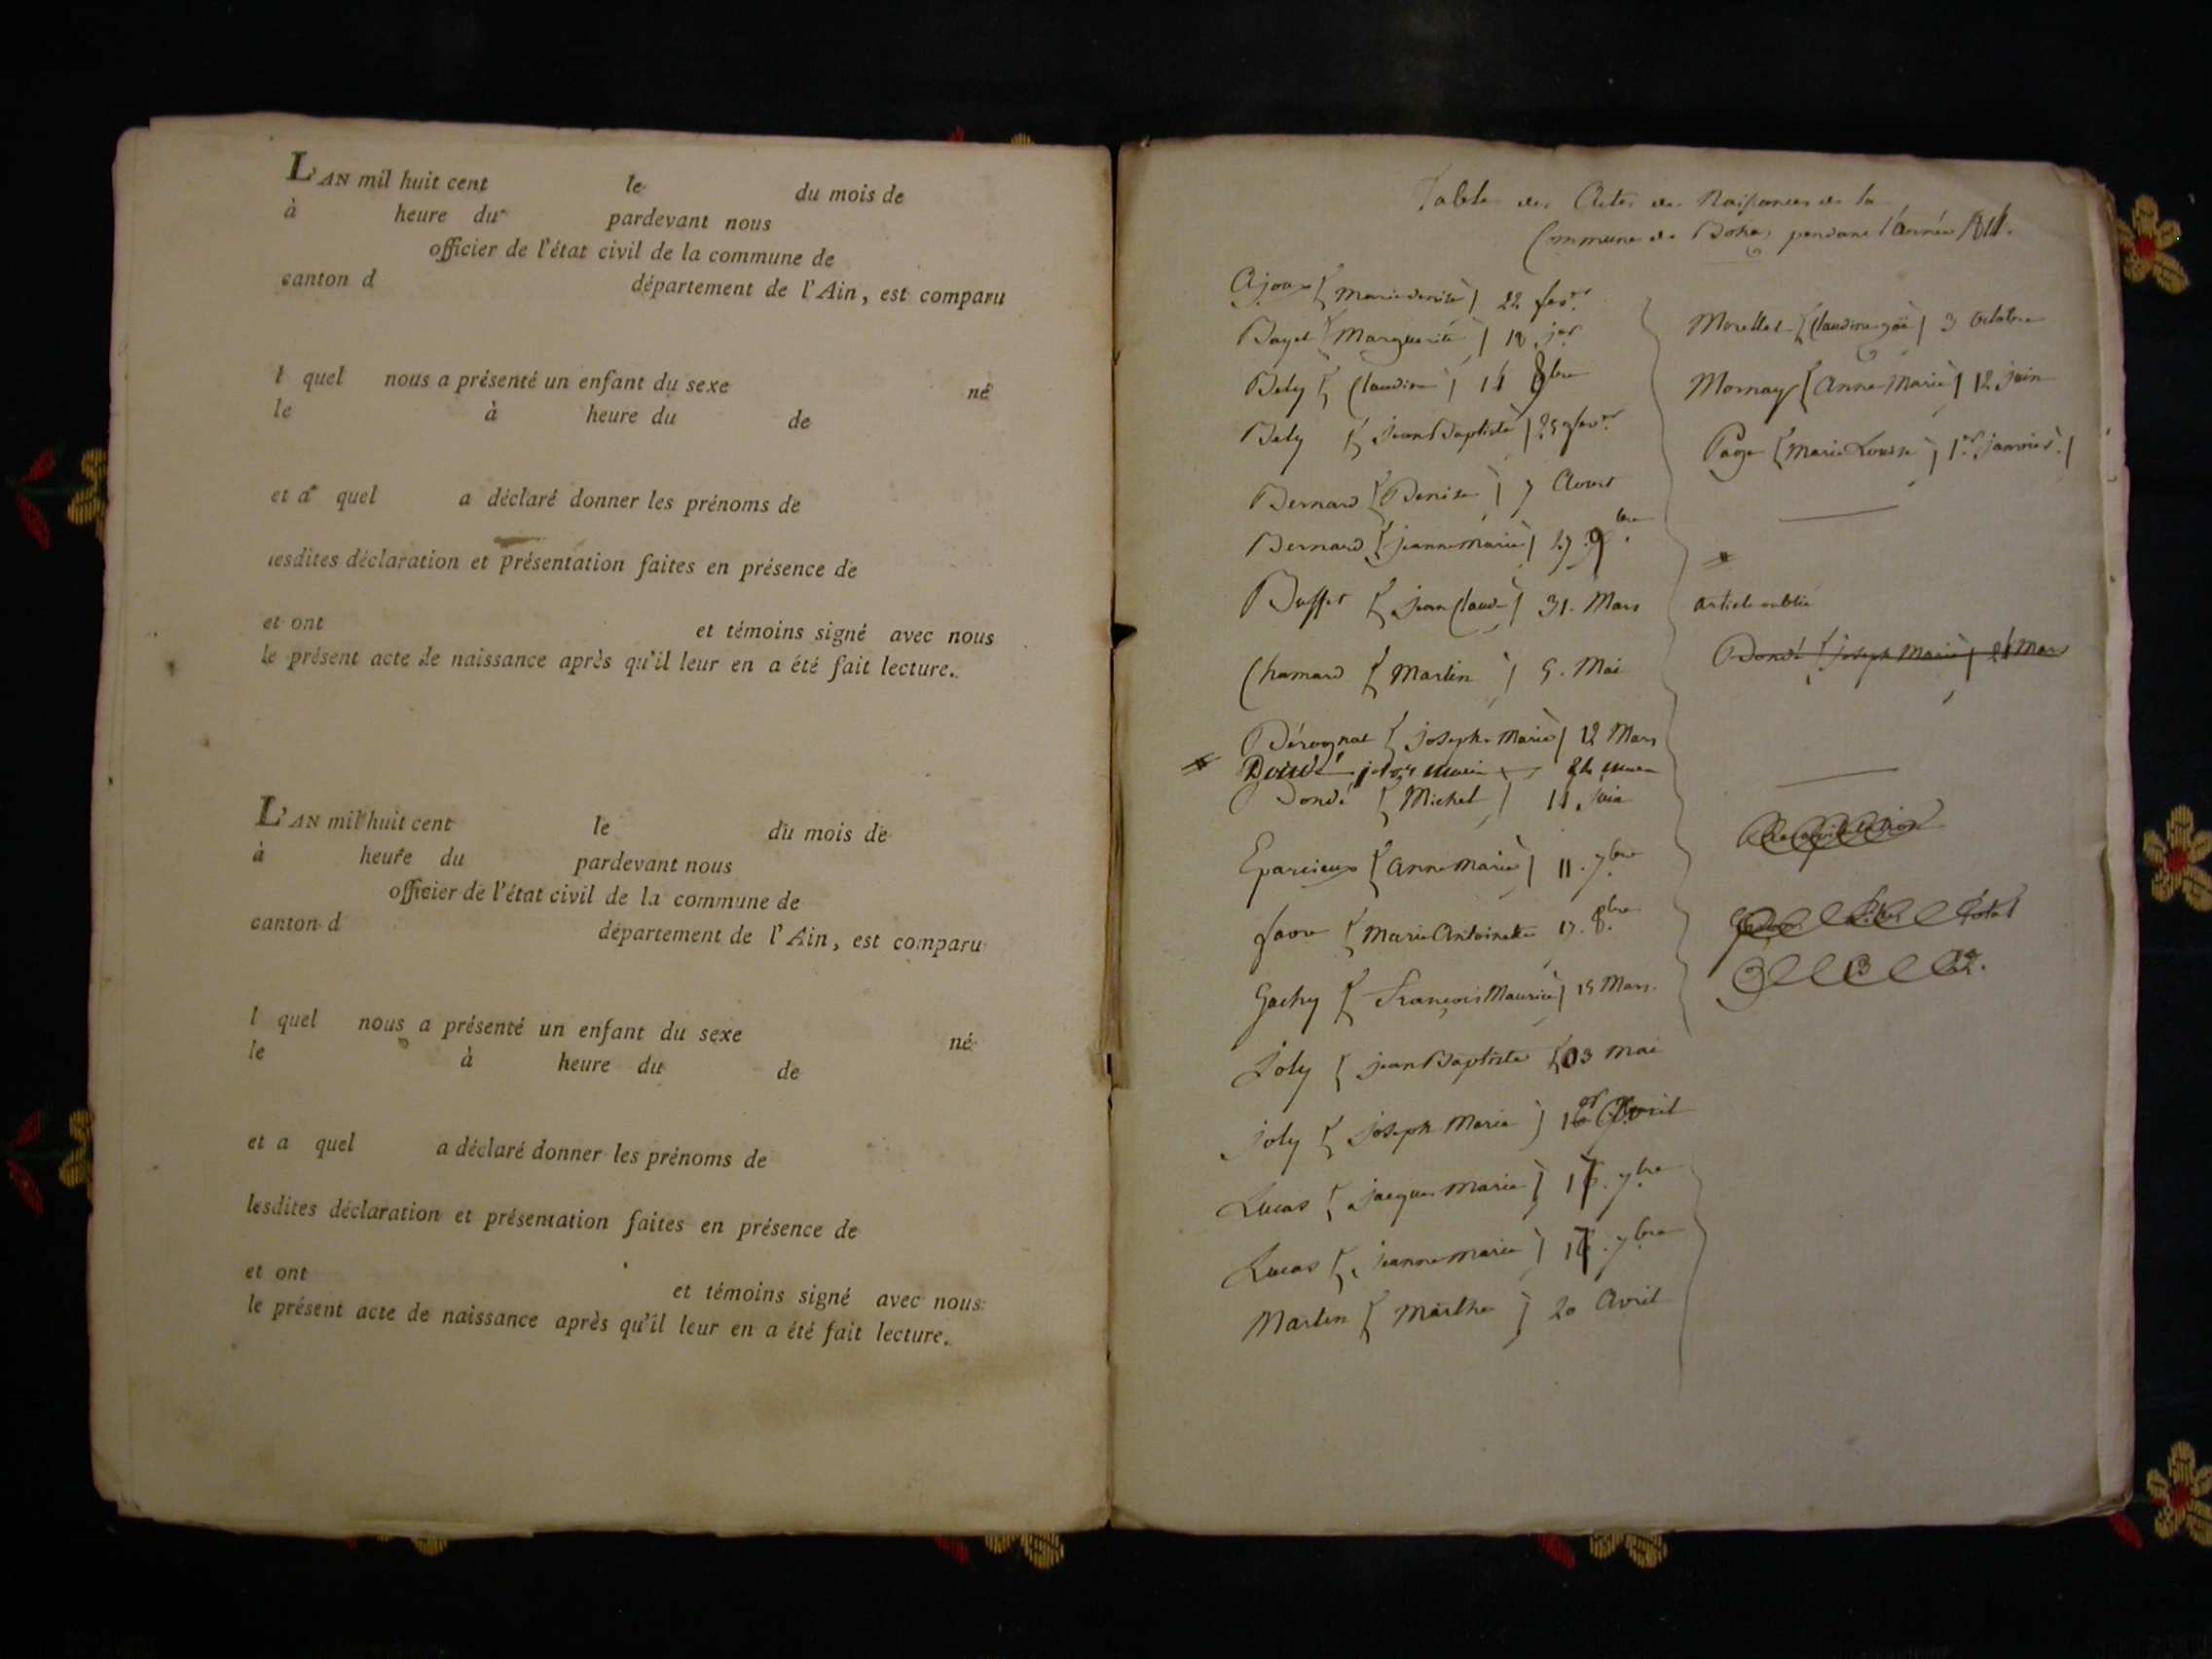 L'AN mil huit cent le du mois de
à heure du pardevant nous
officier de l'état civil de la commune de
canton d département de l'Ain, est comparu
l quel nous a présenté un enfant du sexe né
le à heure du de
et a quel a déclaré donner les prénoms de
lesdites déclaration et présentation faites en présence de
et ont et témoins signé avec nous
le présent acte de naissance après qu'il leur en a été fait lecture.
L'AN mil huit cent le du mois de
à heure du pardevant nous
officier de l'état civil de la commune de
canton d département de l'Ain, est comparu
l quel nous a présenté un enfant du sexe né
le à heure du de
et a quel a déclaré donner les prénoms de
lesdites déclaration et présentation faites en présence de
et ont et témoins signé avec nous
le présent acte de naissance après qu'il leur en a été fait lecture.
Table des Actes de Naissances de la
Commune de Bohas pendant l'année
Ajoux { Marie Denise } 22 fevr.
Bayet { Marguerite } 18 jer
Bely { Claudine } 8bre
Bely { Jean Baptiste } fevr.
Bernard { Denise } 7 Aoust
Bernard { jeanne Marie } 27 9bre
Buffet { Jean Claude } 31. Mars
Chamard { Martin } 5. Mai
Dérognat { Joseph Marie } 12 Mars
# Dondé joseph marie mars
Dondé { Michel } 11 Juin
Eparcieux { Anne Marie } 11. 7bre
favre { Marie Antoinette 17. 8bre
Gachy { François Maurice } 15 Mars.
Joly { jean Baptiste { 03 mai
joly { Joseph Marie } Avril
Lucas { Jacques Marie } 7bre
Lucas { Jeanne Marie } 7bre
Martin { Marthe } 20 Avril
Morellet { Claudine } 3 Octobre
Mornay { Anne Marie } 12 Juin
Page { Marie Louise } 1er janvier.
#
article oublié
Dondé { Joseph Marie } Mars
Recapitulation
filles Total
13